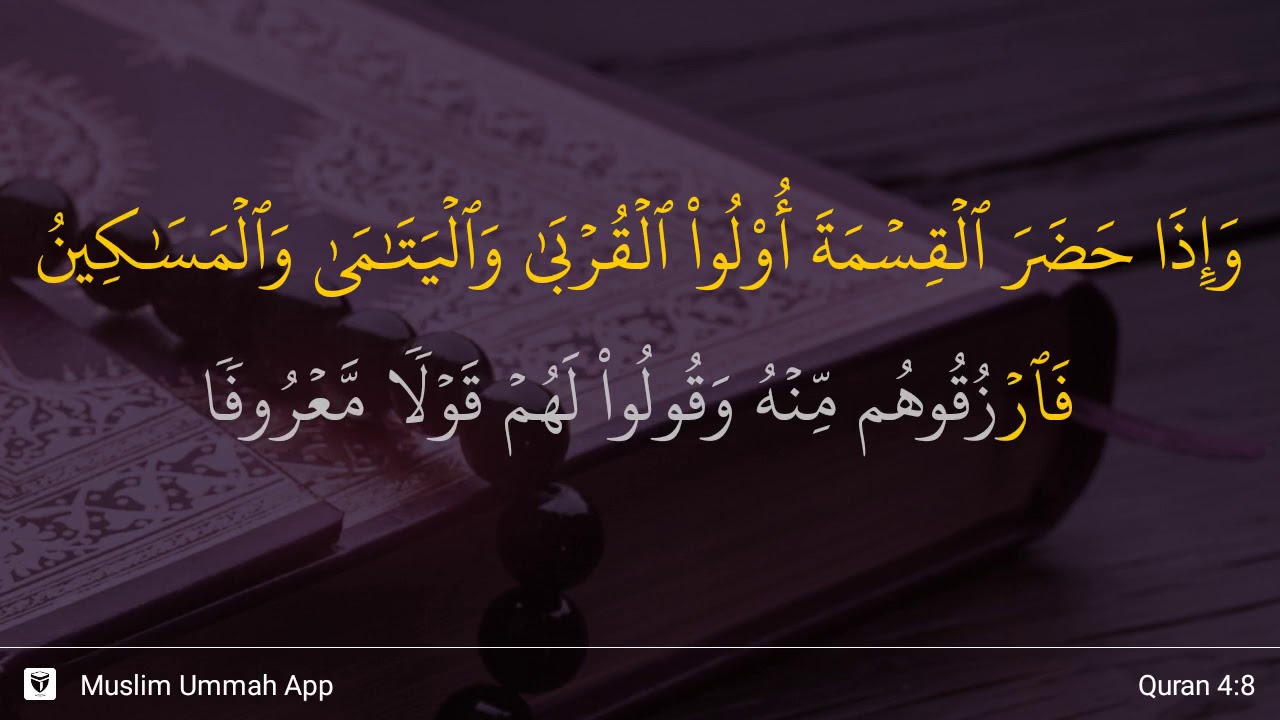 وَإِذَا حَضَرَ ٱلۡقِسۡمَةَ أُوْلُواْ ٱلۡقُرۡبَىٰ وَٱلۡيَتَٰمَىٰ وَٱلۡمَسَٰكِينُ
فَٱرۡزُقُوهُم مِّنۡهُ وَقُولُواْ لَهُمۡ قَوۡلٗا مَّعۡرُوفٗا
Muslim Ummah App
Quran 4:8